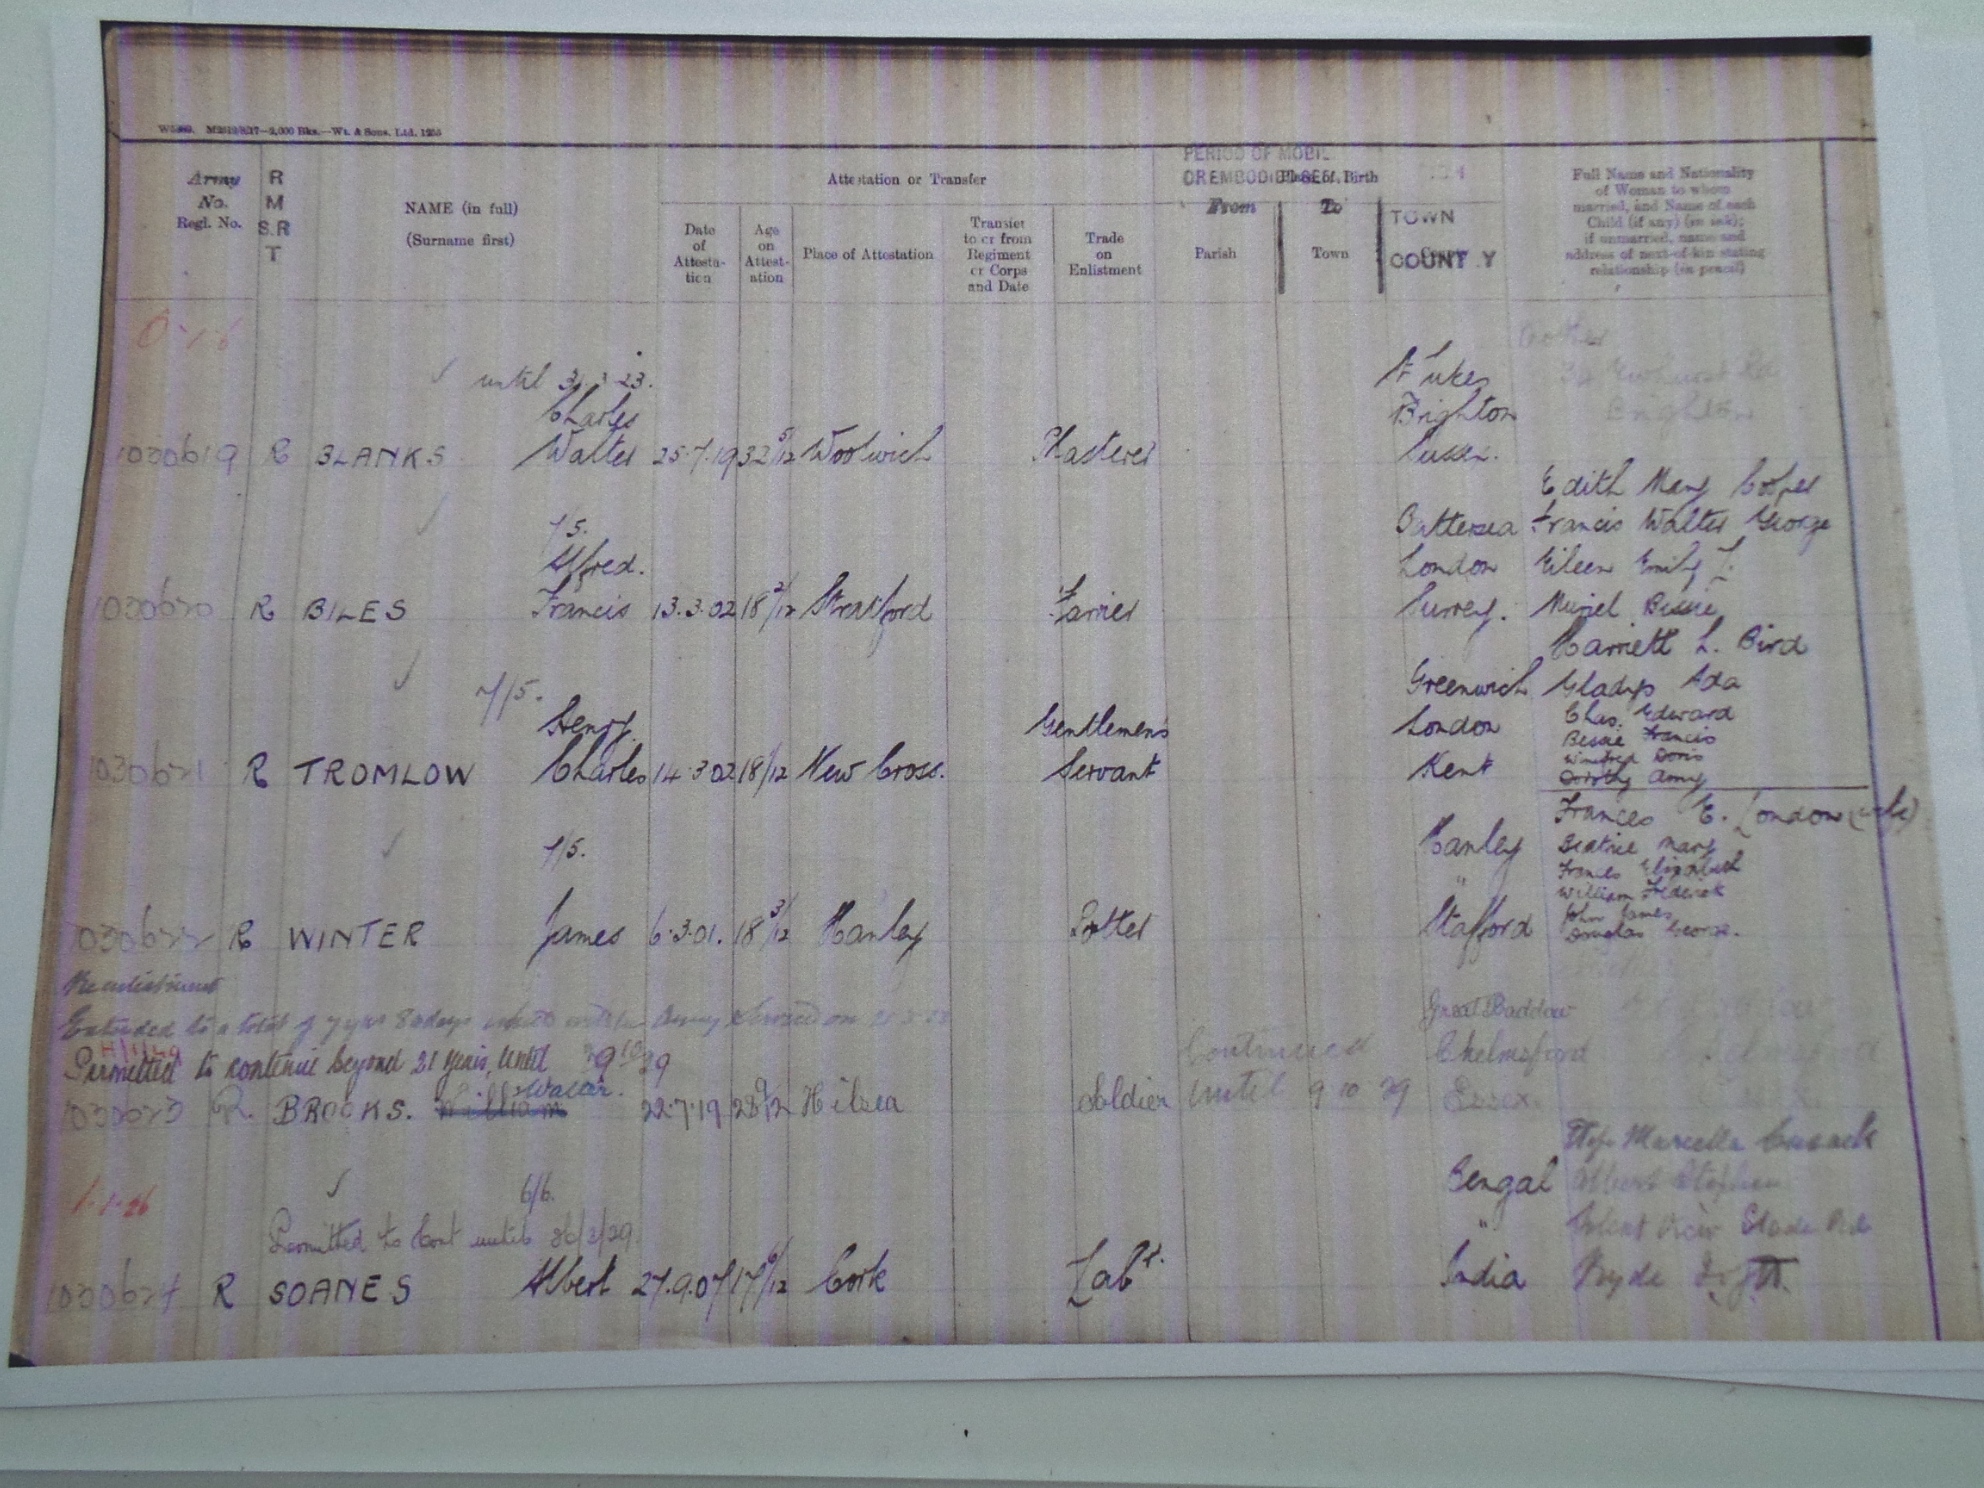 M2812 8/17—2,000 Bks.—Wt. & Sons. Ltd. 1255
Army
No.
Regl. No.
R
M
S.R
T
NAME (in full)
(Surname first)
Attestation or Transfer
Date
of
Attesta-
tion
Age
on
Attest-
ation
Place of Attestation
Transfer
to or from
Regiment
or Corps
and Date
Trade
on
Enlistment
PERIOD OF MOBIL
OR EMBODIED SER.
Place of Birth
From To
Parish
Town
TOWN
COUNTY
Full Name and Nationality
of Woman to whom
married, and Name of each
Child (if any) (in ink);
if unmarried, name and
address of next-of-kin stating
relationship (in pencil)
until 31.3.23.
St Lukes
Charles
Brighton
Brighton
1030619 R BLANKS Walter 25.7.19 32 5/12 Woolwich Plasterer Sussex.
Edith Mary Cooper
7/5.
Battersea Francis Walter George
Alfred.
London Eileen Emily
1030620 R BILES Francis 13.3.02 18 2/12 Stratford Farrier Surrey. Muriel Bessie
Harriett L. Bird
7/5.
Greenwich Gladys Ada
Henry Gentlemen's London Chas. Edward
Bessie Francis
Winifred Doris
1030621 R TROMLOW Charles 14.3.02 18/12 New Cross. Servant Kent Dorothy Amy
Frances E. London (wife)
7/5.
Hanley Beatrice Mary
" Frances Elizabeth
William Frederick
John James
1030622 R WINTER James 6.3.01. 18 3/12 Hanley Potter Stafford Douglas George.
Re enlistment
Great Baddow
Extended to a total of 7 yrs 80 days Army Service on
Permitted to continue beyond 21 years, until 9 10 29 Continued Chelmsford
Walter.
1030623 R. BROOKS. William 22.7.19 28 9/12 Hilsea Soldier until 9 10 29 Essex.
Wife Marcella Cusack
1.1.26
6/6.
Bengal Albert Stephen
Permitted to Cont until 26/2/29.
"
1030624 R SOANES Albert 27.9.07 17 9/12 Cork Labr. India Ryde I. of W.